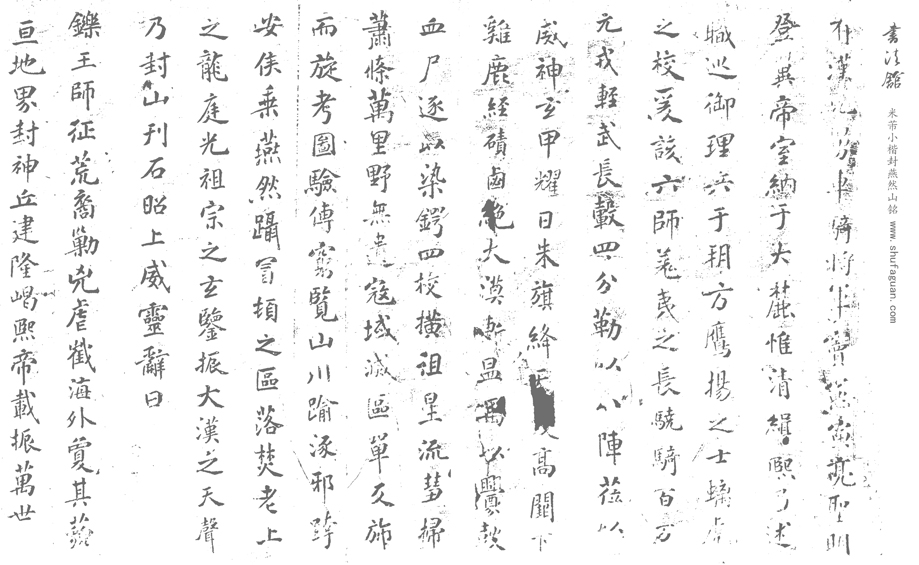 書法館
米芾小楷封燕然山銘 www.shufaguan.com
有漢元舅車騎將軍竇憲寅亮聖明
登翼帝室納于大麓惟清緝熙乃述
職巡御理兵于朔方鷹揚之士螭虎
之校爰該六師暨南之長驍騎百万
元戎輕武長轂四分勒以八陣莅以
威神玄甲耀日朱旗絳天 高闕下
雞鹿經磧鹵絕大漠斬溫禺以釁鼓
血尸逐以染鍔四校橫徂星流彗掃
蕭條萬里野無遺寇域滅區單反旆
而旋考圖驗傳窮覽山川踰涿邪跨
安侯乘燕然躡冒頓之區落焚老上
之龍庭光祖宗之玄鑒振大漢之天聲
乃封山刊石昭上威靈辭曰
鑠王師征荒裔勦兇虐截海外敻其邈
亘地界封神丘建隆嵑熙帝載振萬世